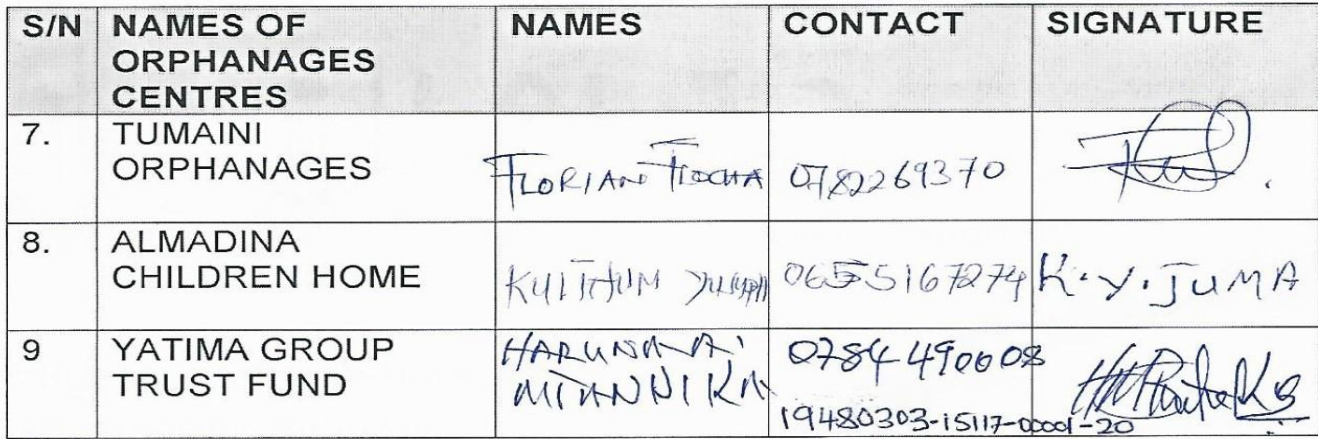 S/N NAMES OF ORPHANAGES CENTRES NAMES CONTACT SIGNATURE
7. TUMAINI ORPHANAGES FLORIAN 0782269370
8. ALMADINA CHILDREN HOME 0655167274 K.Y.JUMA
9 YATIMA GROUP TRUST FUND HARUNA 0784 490008
19480303-15117-00001-20